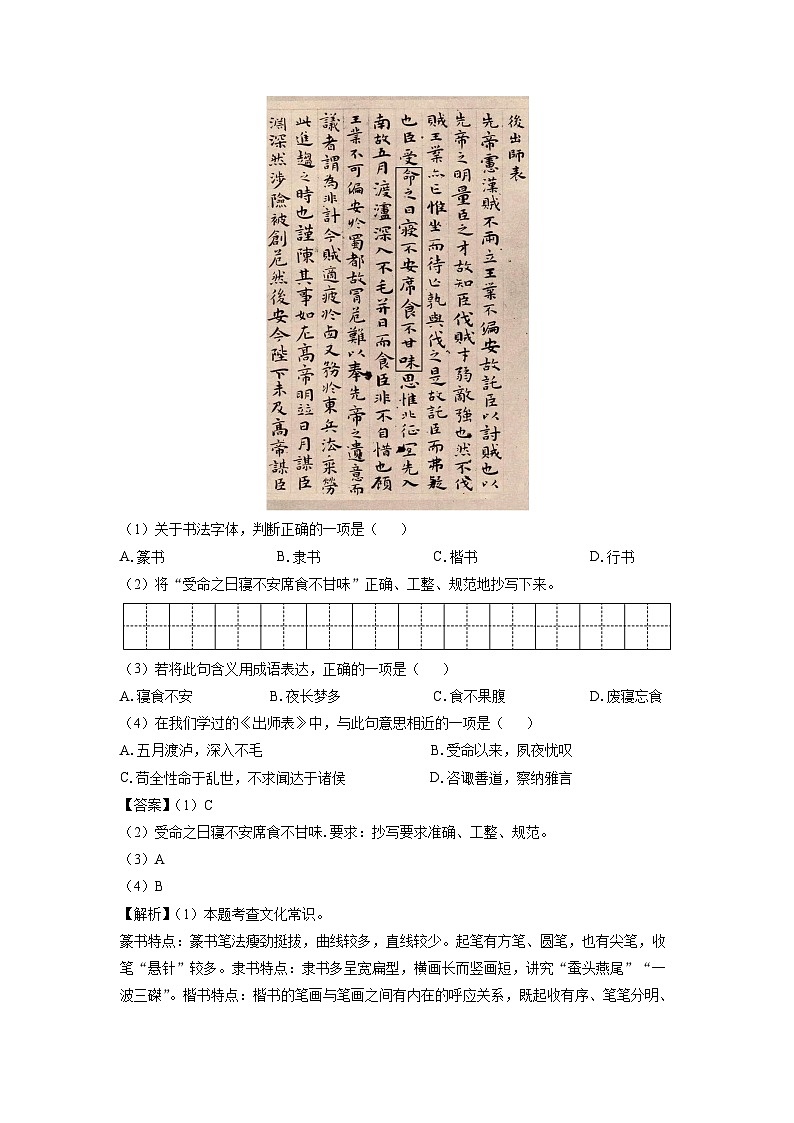 後出師表
先帝慮漢賊不兩立王業不偏安故託臣以討賊也以
先帝之明量臣之才故知臣伐賊才弱敵強也然不伐
賊王業亦亡惟坐而待亡孰與伐之是故託臣而弗疑
也臣受命之日寑不安席食不甘味思惟北征宜先入
南故五月渡瀘深入不毛并日而食臣非不自惜也顧
王業不可偏安於蜀都故冒危難以奉先帝之遺意而
議者謂為非計今賊適疲於西又務於東兵法乘勞
此進趨之時也謹陳其事如左高帝明竝日月謀臣
淵深然涉險被創危然後安今陛下未及高帝謀臣
（1）关于书法字体，判断正确的一项是（　　）
A.篆书 B.隶书 C.楷书 D.行书
（2）将“受命之日寝不安席食不甘味”正确、工整、规范地抄写下来。
（3）若将此句含义用成语表达，正确的一项是（　　）
A.寝食不安 B.夜长梦多 C.食不果腹 D.废寝忘食
（4）在我们学过的《出师表》中，与此句意思相近的一项是（　　）
A.五月渡泸，深入不毛 B.受命以来，夙夜忧叹
C.苟全性命于乱世，不求闻达于诸侯 D.咨诹善道，察纳雅言
【答案】（1）C
（2）受命之日寝不安席食不甘味.要求：抄写要求准确、工整、规范。
（3）A
（4）B
【解析】（1）本题考查文化常识。
篆书特点：篆书笔法瘦劲挺拔，曲线较多，直线较少。起笔有方笔、圆笔，也有尖笔，收
笔“悬针”较多。隶书特点：隶书多呈宽扁型，横画长而竖画短，讲究“蚕头燕尾”“一
波三磔”。楷书特点：楷书的笔画与笔画之间有内在的呼应关系，既起收有序、笔笔分明、